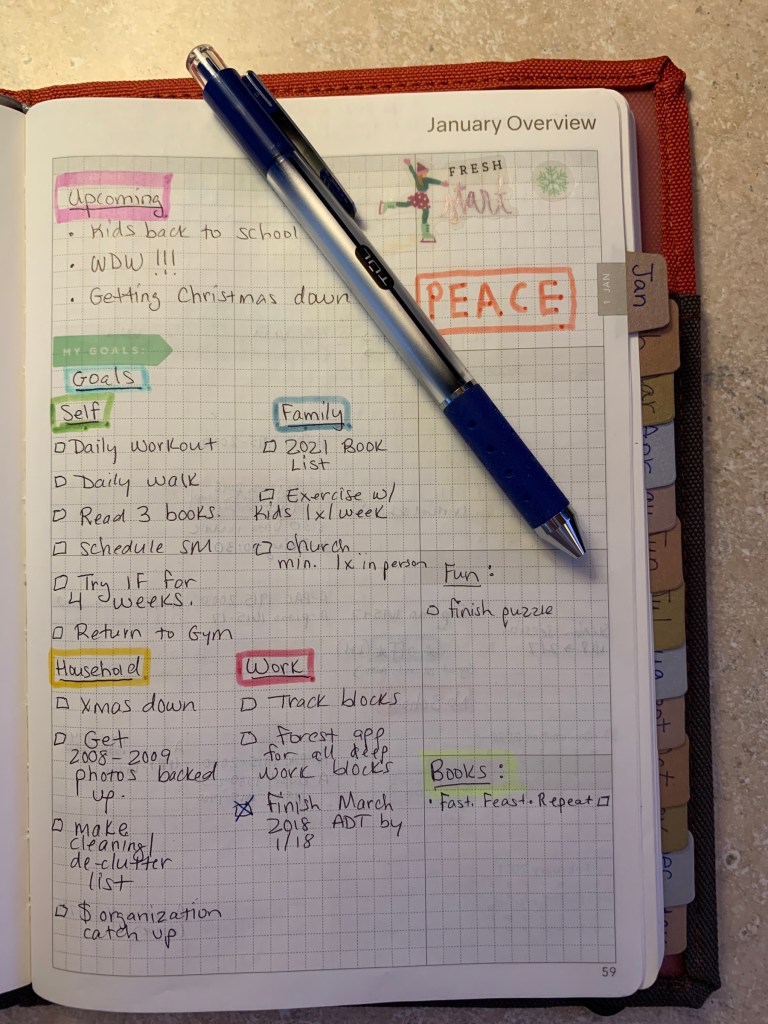 January Overview
FRESH
start
Upcoming
• Kids back to school
• WDW !!!
• Getting Christmas down
PEACE
1 JAN
Jan
TUL
MY GOALS:
Goals
Self
Daily Workout
Daily walk
Read 3 books.
Schedule SM
Try IF for
4 weeks.
Return to Gym
Family
2021 Book
List
Exercise w/
Kids 1x/week
church
min. 1x in person
Fun:
finish puzzle
Household
Xmas down
Get
2008-2009
photos backed
up.
make
cleaning/
de-clutter
list
$ organization
catch up
Work
Track blocks
Forest app
for all deep
work blocks
Finish March
2018 ADT by
1/18
Books:
• Fast. Feast. Repeat
59